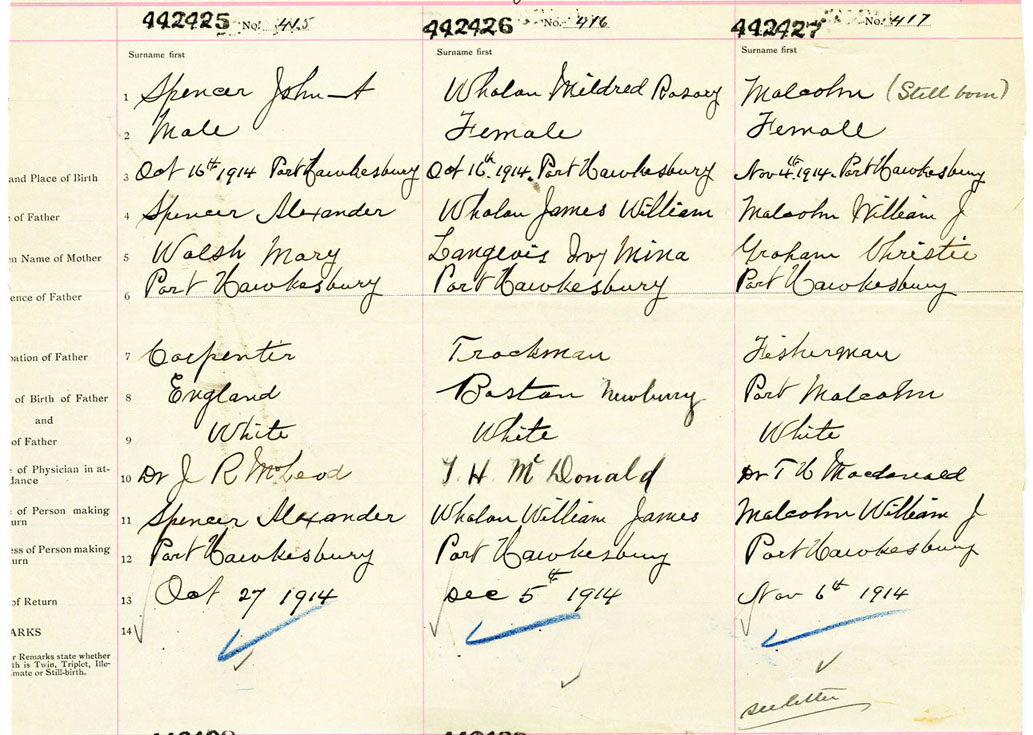 442425 No. 415 442426 No. 416 442427 No. 417
Surname first Surname first Surname first
1 Spencer John A Whalan Mildred Rosary Malcolm (Still born)
2 Male Female Female
and Place of Birth 3 Oct 16th 1914 Port Hawkesbury Oct 16th 1914. Port Hawkesbury Nov 4th 1914. Port Hawkesbury
e of Father 4 Spencer Alexander Whalan James William Malcolm William J
en Name of Mother 5 Walsh Mary Langevis Ivy Mina Graham Christie
ence of Father 6 Port Hawkesbury Port Hawkesbury Port Hawkesbury
pation of Father 7 Carpenter Trackman Fisherman
of Birth of Father 8 England Boston Newbury Port Malcolm
and
of Father 9 White White White
e of Physician in at-
dance 10 Dr J R McLeod T. H. McDonald Dr T H Macdonald
e of Person making
urn 11 Spencer Alexander Whalan William James Malcolm William J
ess of Person making
urn 12 Port Hawkesbury Port Hawkesbury Port Hawkesbury
of Return 13 Oct 27 1914 Dec 5th 1914 Nov 6th 1914
ARKS 14
r Remarks state whether
th is Twin, Triplet, Ille-
mate or Still-birth.
see letter